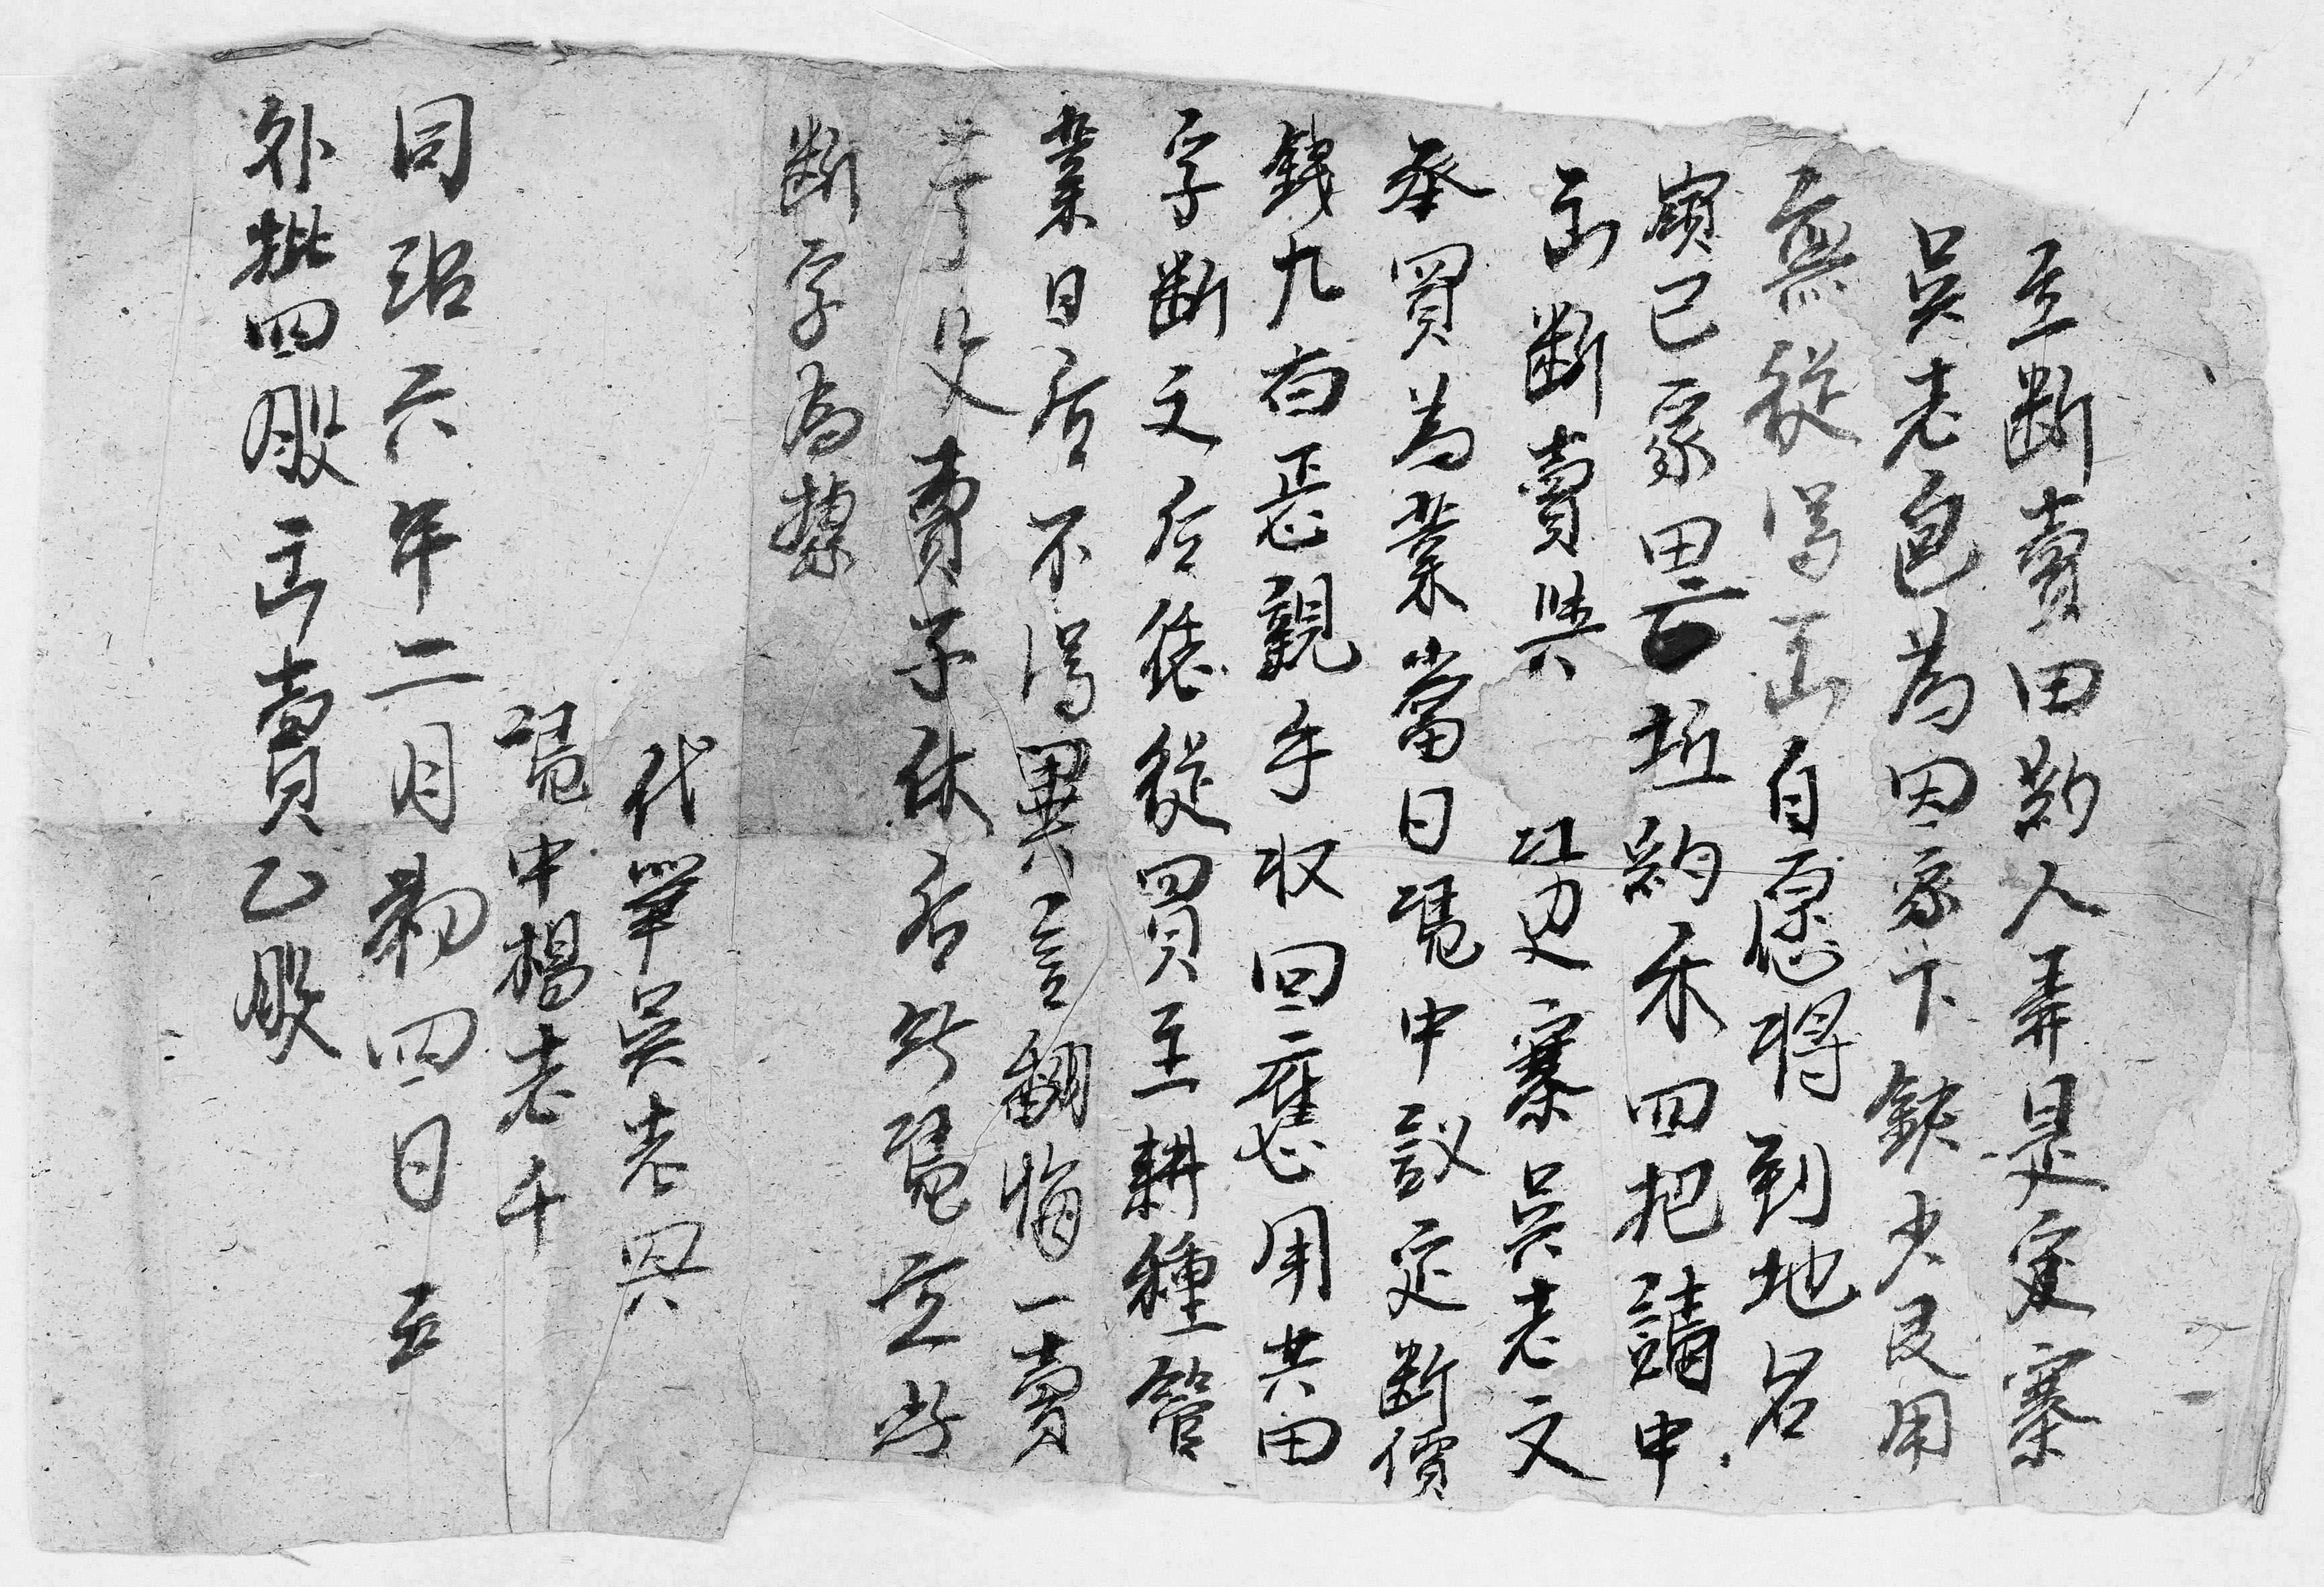 立断賣田約人弄是定寨
吳老包為因家下缺少艮用
無從得出自愿将到地名
嶺己家田一坵約禾四把請中
出断賣與边寨吳老文
承買為業當日凴中議定断價
錢九百親手収回應用其田
字断之后從買主耕種管
業日后不得異言翻悔一賣
了父賣子休后無凴立此
断字為據
代筆吳老興
凴中楊老千
同治六年二月初四日立
外批四股出賣乙股